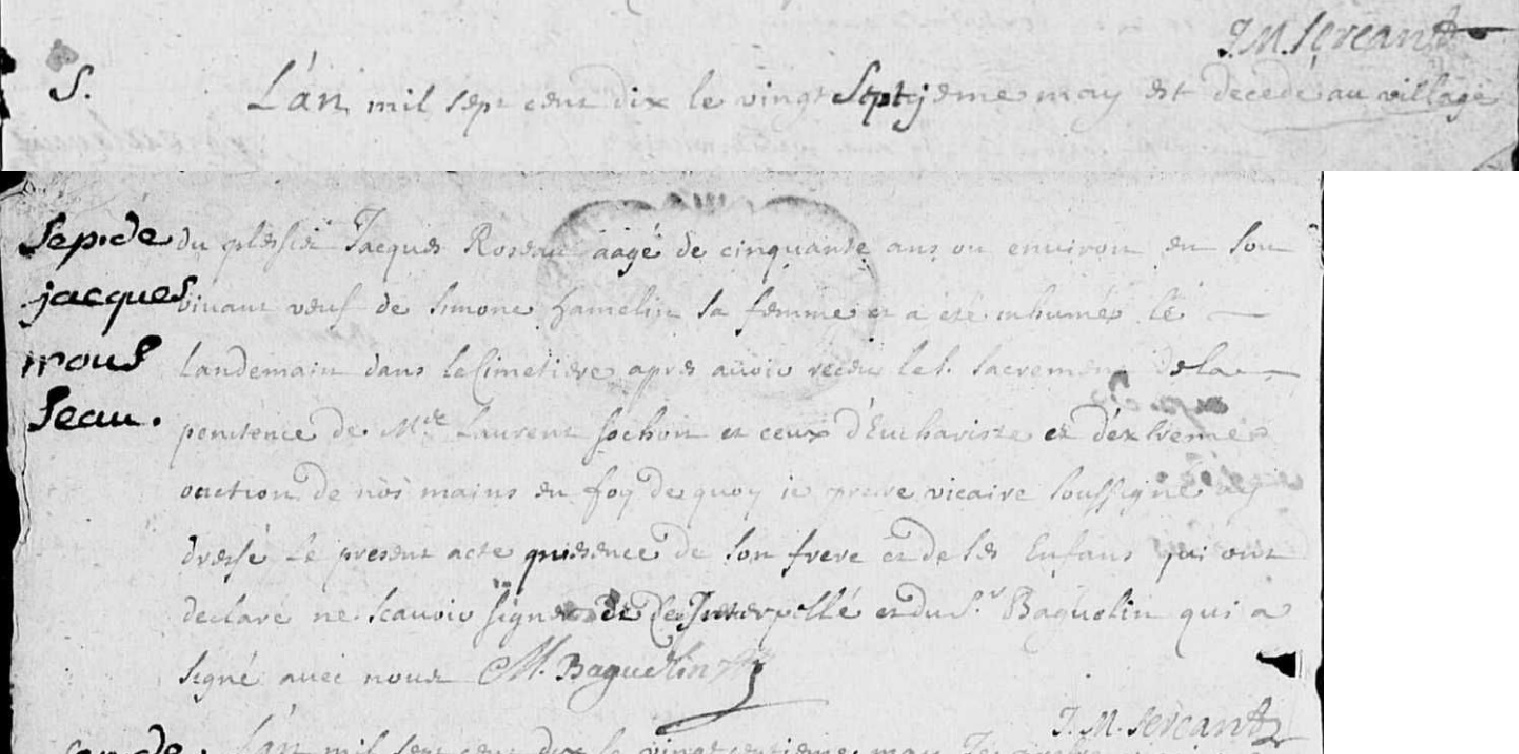 J.M. Sercant
S. L'an mil sept cent dix le vingt septjeme may est decedé au village
Sep. de
jacques
Seau.
du plessis Jacques aagé de cinquante ans ou environ en son
vivant veuf de Simone hamelin sa femme et a eté inhumé le
landemain dans le Cimetiere apres avoir receu le s. sacrement de la
penitence de Mre Laurent Sochon et ceux d'Eucharistie et d'extreme
onction de nos mains en foy de quoy je pretre vicaire soussigné ay
dressé le present acte presence de son frere et de ses Enfans qui ont
declaré ne scavoir signer de ce Interpellé et du Sr Baguelin qui a
signé avec nous M. Baguelin
J. M. Sercant
L'an mil sept cent dix le may